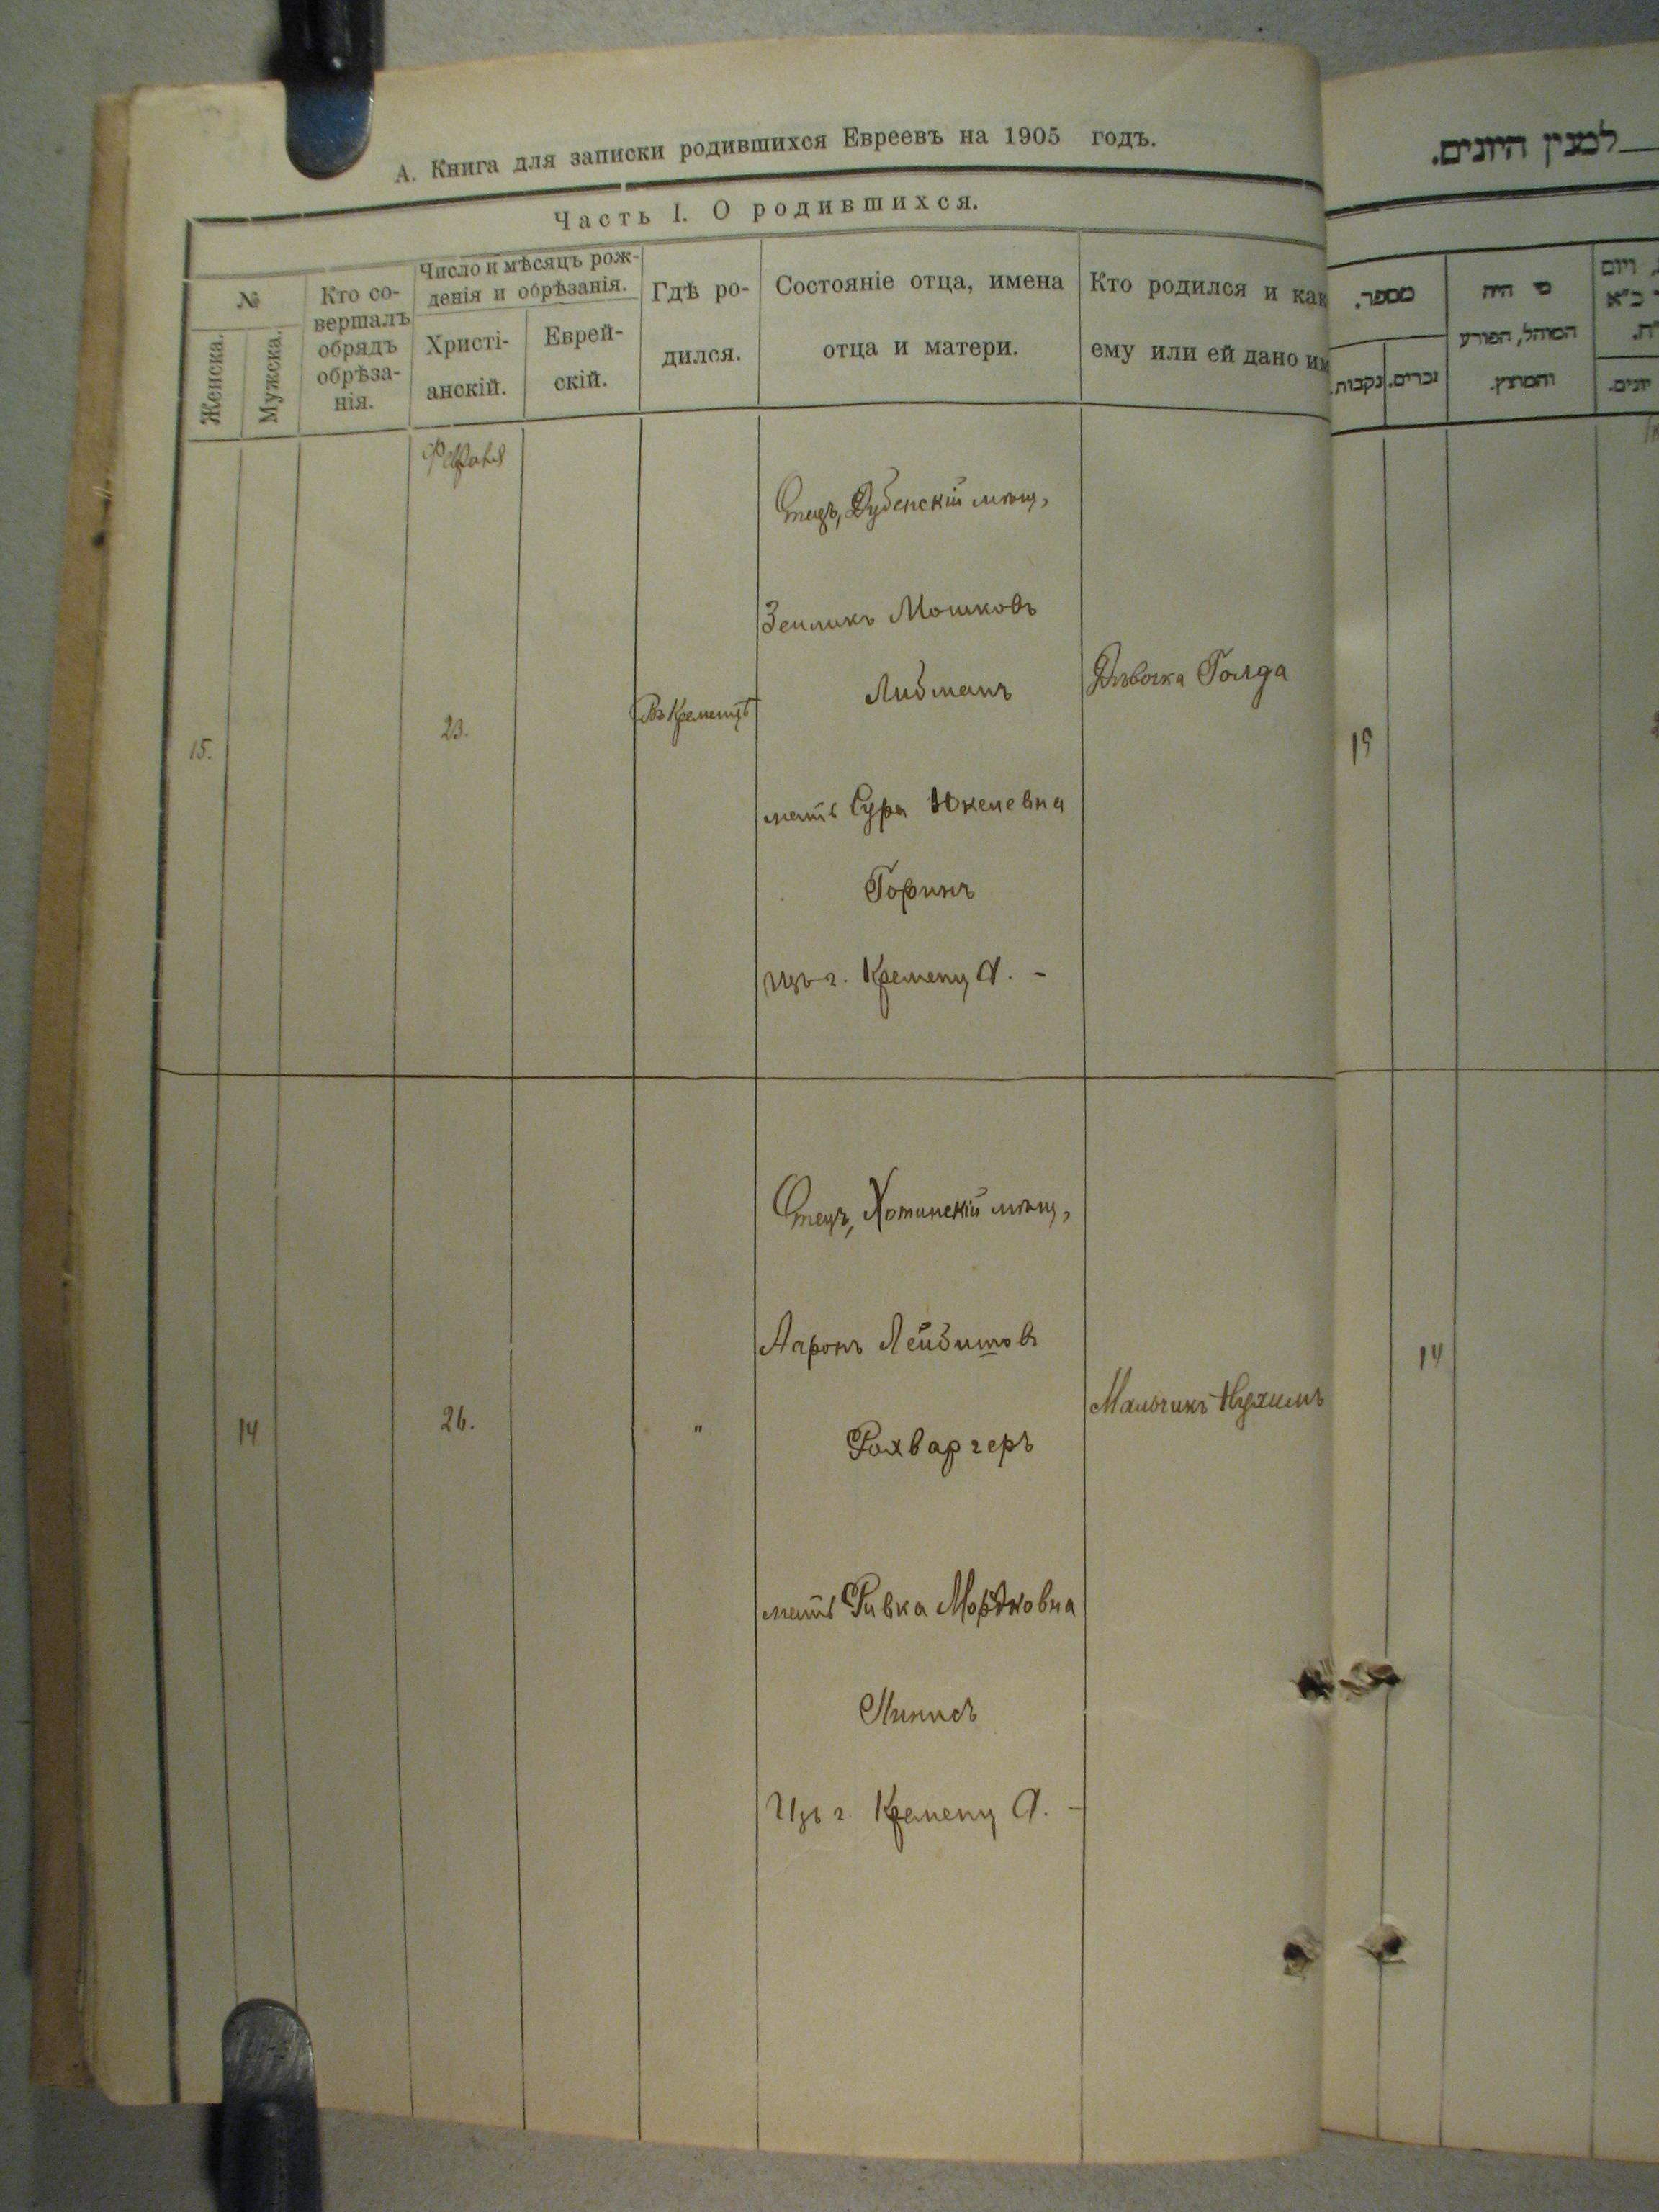 А. Книга для записки родившихся Евреевъ на 1905 годъ.
Часть I. О родившихся.
№
Женска.
Мужска.
Кто со-
вершалъ
обрядъ
обрѣза-
нія.
Число и мѣсяцъ рож-
денія и обрѣзанія.
Христі-
анскій.
Еврей-
скій.
Гдѣ ро-
дился.
Состояніе отца, имена
отца и матери.
Кто родился и как
ему или ей дано им
15.
23.
Въ Кременцѣ
Отецъ, Дубенскій мѣщ,
Зейликъ Мошковъ
Либманъ
мать Сура Юкелевна
Горинъ
Изъ г. Кременца. -
Дѣвочка Голда
14
26.
"
Отецъ, Хотинскій мѣщ,
Ааронъ Лейбишовъ
Рохваргеръ
мать Ривка Мордковна
Изъ г. Кременца. -
Мальчикъ Нухимъ
למנין היונים.
מספר.
נקבות.
זכרים.
מי היה
המוהל, הפורע
והמוצץ.
ויום
כ"א
יונים.
15
14